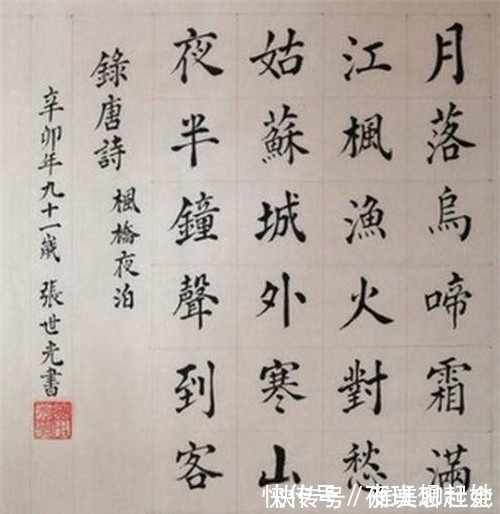 月落烏啼霜滿
江楓漁火對愁
姑蘇城外寒山
夜半鐘聲到客
錄唐詩
楓橋夜泊
辛卯年九十一歲 張世光書
快传号／